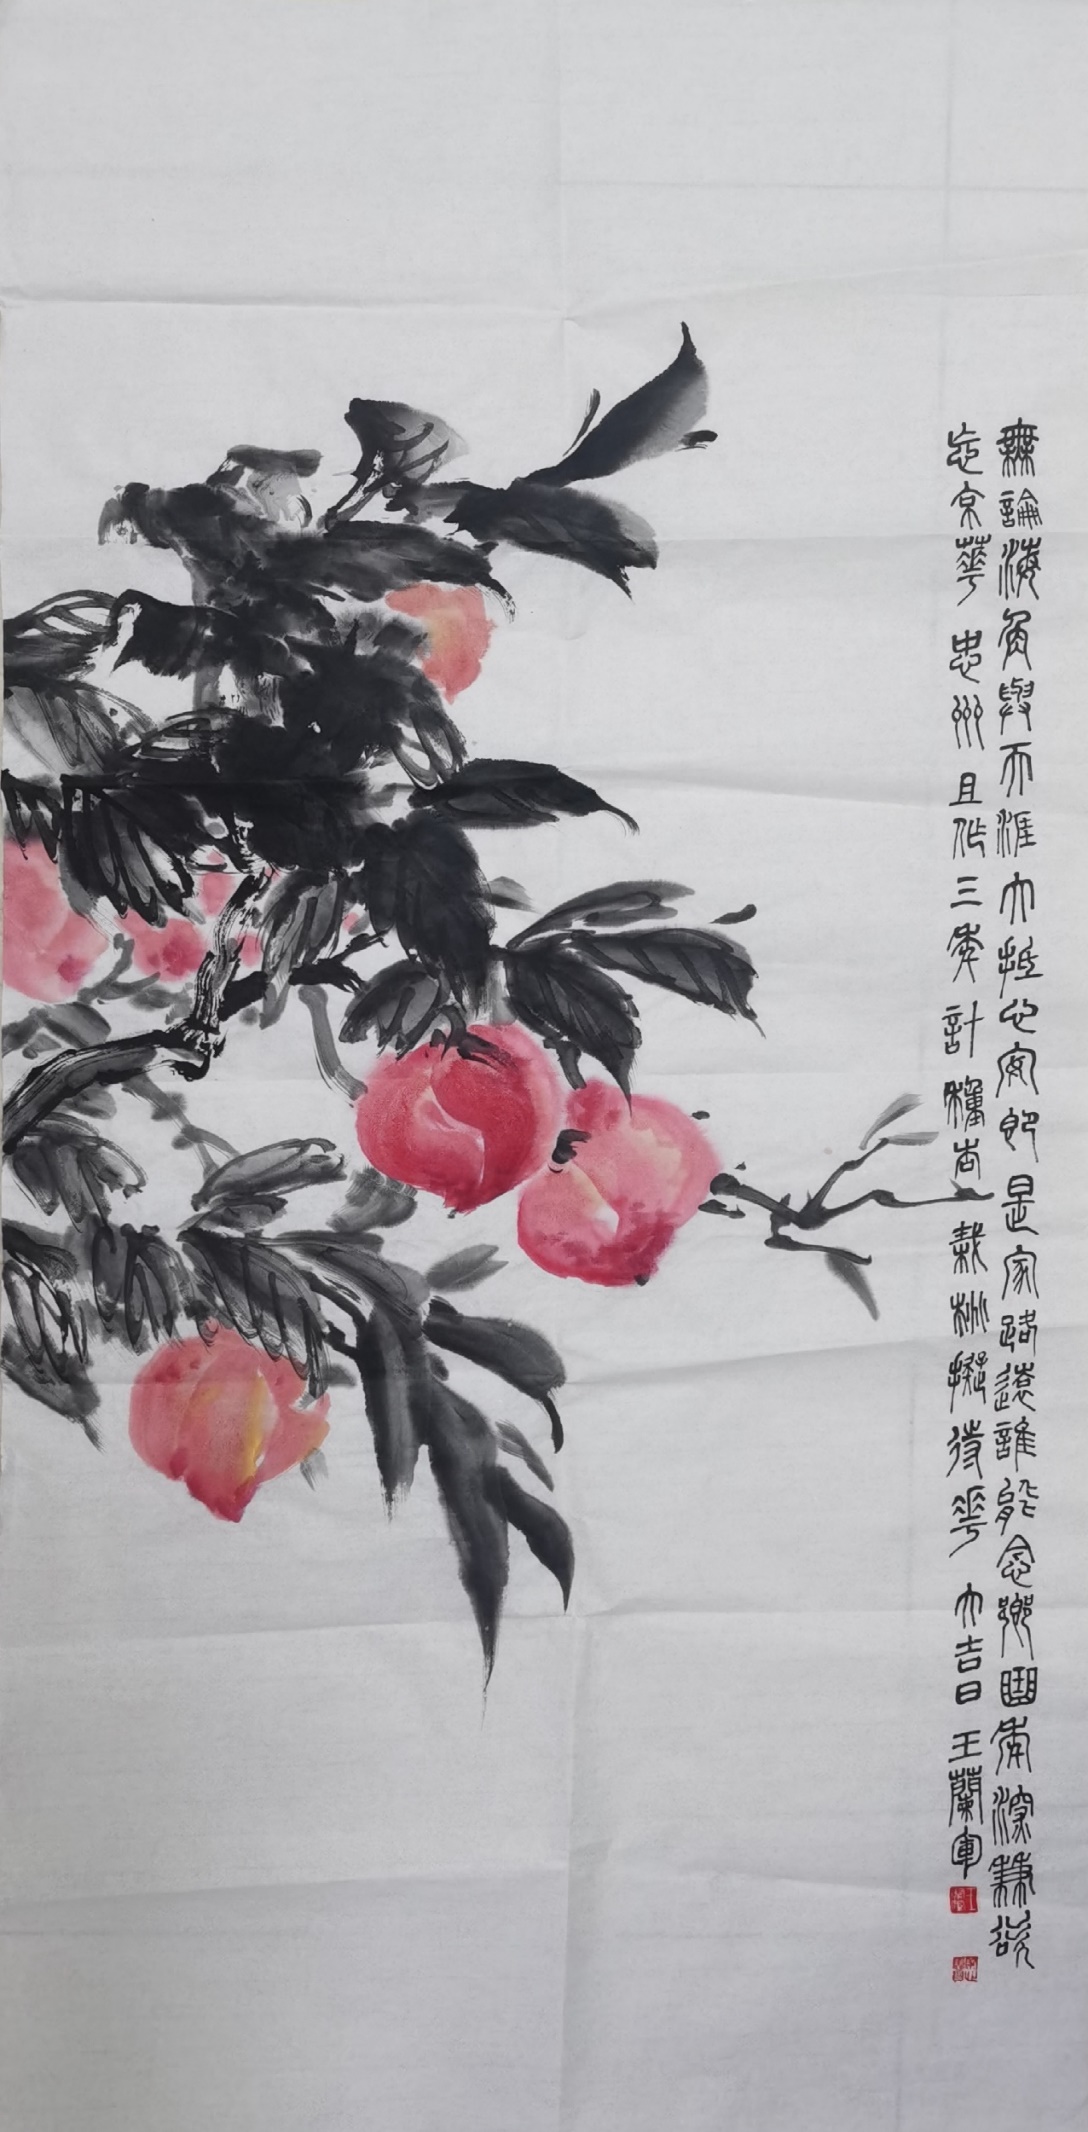 無論海角與天涯大抵心安即是家路遠誰能念鄉曲年深兼欲
忘京華忠州且作三年計種杏栽桃擬待花大吉日王蘭軍